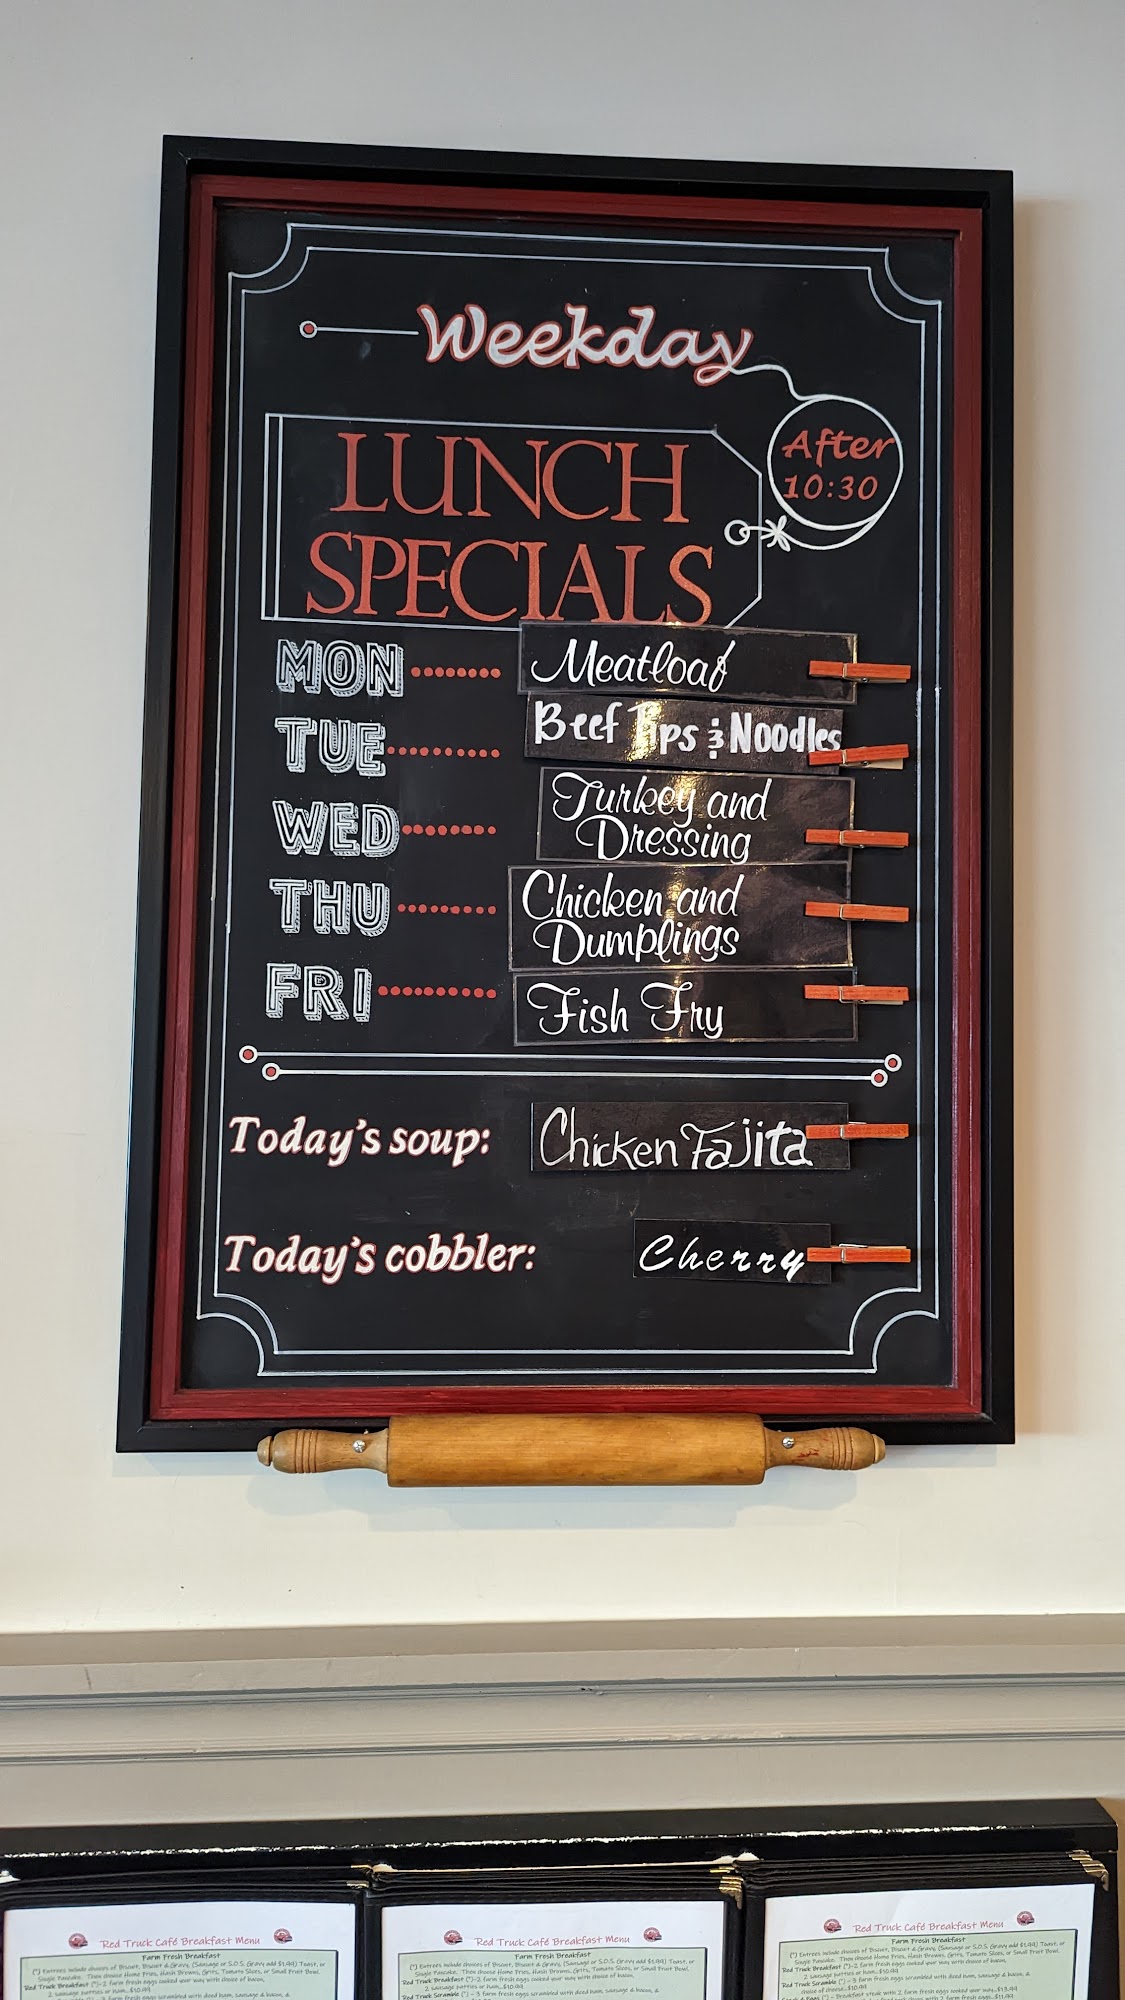 Weekday
After
10:30
LUNCH
SPECIALS
MON Meatloaf
TUE Beef Tips & Noodles
WED Turkey and
Dressing
THU Chicken and
Dumplings
FRI Fish Fry
Today's soup: Chicken Fajita
Today's cobbler: Cherry
Red Truck Café Breakfast Menu
Farm Fresh Breakfast
(*) Entrees include choices of Biscuit, Biscuit & Gravy, (Sausage or S.O.S. Gravy add $1.99) Toast, or
Single Pancake. Then choose Home Fries, Hash Browns, Grits, Tomato Slices, or Small Fruit Bowl.
Red Truck Breakfast (*)- 2 farm fresh eggs cooked your way with choice of bacon,
2 sausage patties or ham...$10.99
Red Truck Café Breakfast Menu
Farm Fresh Breakfast
(*) Entrees include choices of Biscuit, Biscuit & Gravy, (Sausage or S.O.S. Gravy add $1.99) Toast, or
Single Pancake. Then choose Home Fries, Hash Browns, Grits, Tomato Slices, or Small Fruit Bowl.
Red Truck Breakfast (*)- 2 farm fresh eggs cooked your way with choice of bacon,
2 sausage patties or ham...$10.99
Red Truck Scramble (*) – 3 farm fresh eggs scrambled with diced ham, sausage &
Red Truck Café Breakfast Menu
Farm Fresh Breakfast
(*) Entrees include choices of Biscuit, Biscuit & Gravy, (Sausage or S.O.S. Gravy add $1.99) Toast, or
Single Pancake. Then choose Home Fries, Hash Browns, Grits, Tomato Slices, or Small Fruit Bowl.
Red Truck Breakfast (*)- 2 farm fresh eggs cooked your way with choice of bacon,
2 sausage patties or ham...$10.99
Red Truck Scramble (*) – 3 farm fresh eggs scrambled with diced ham, sausage & bacon, and